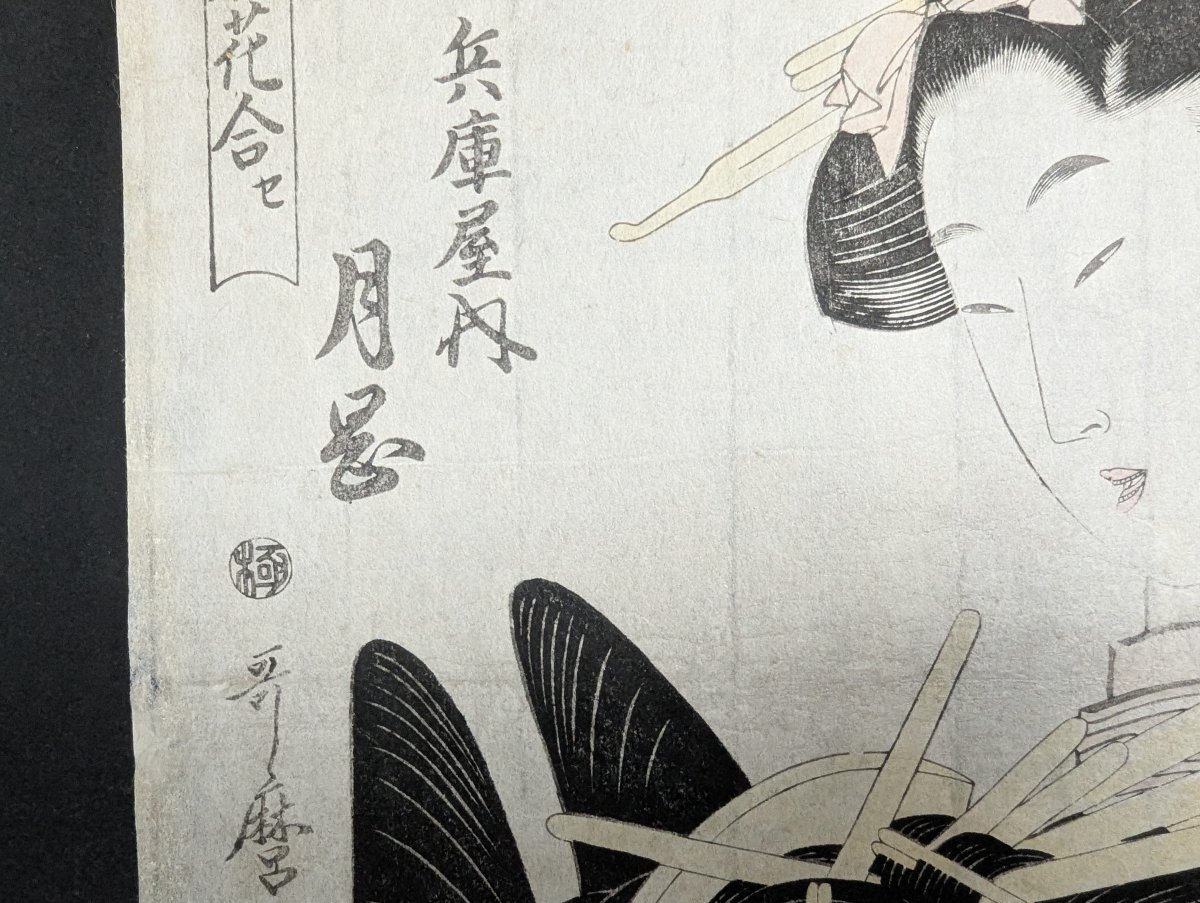 兵庫屋内
月岡
花合セ
極
哥麿